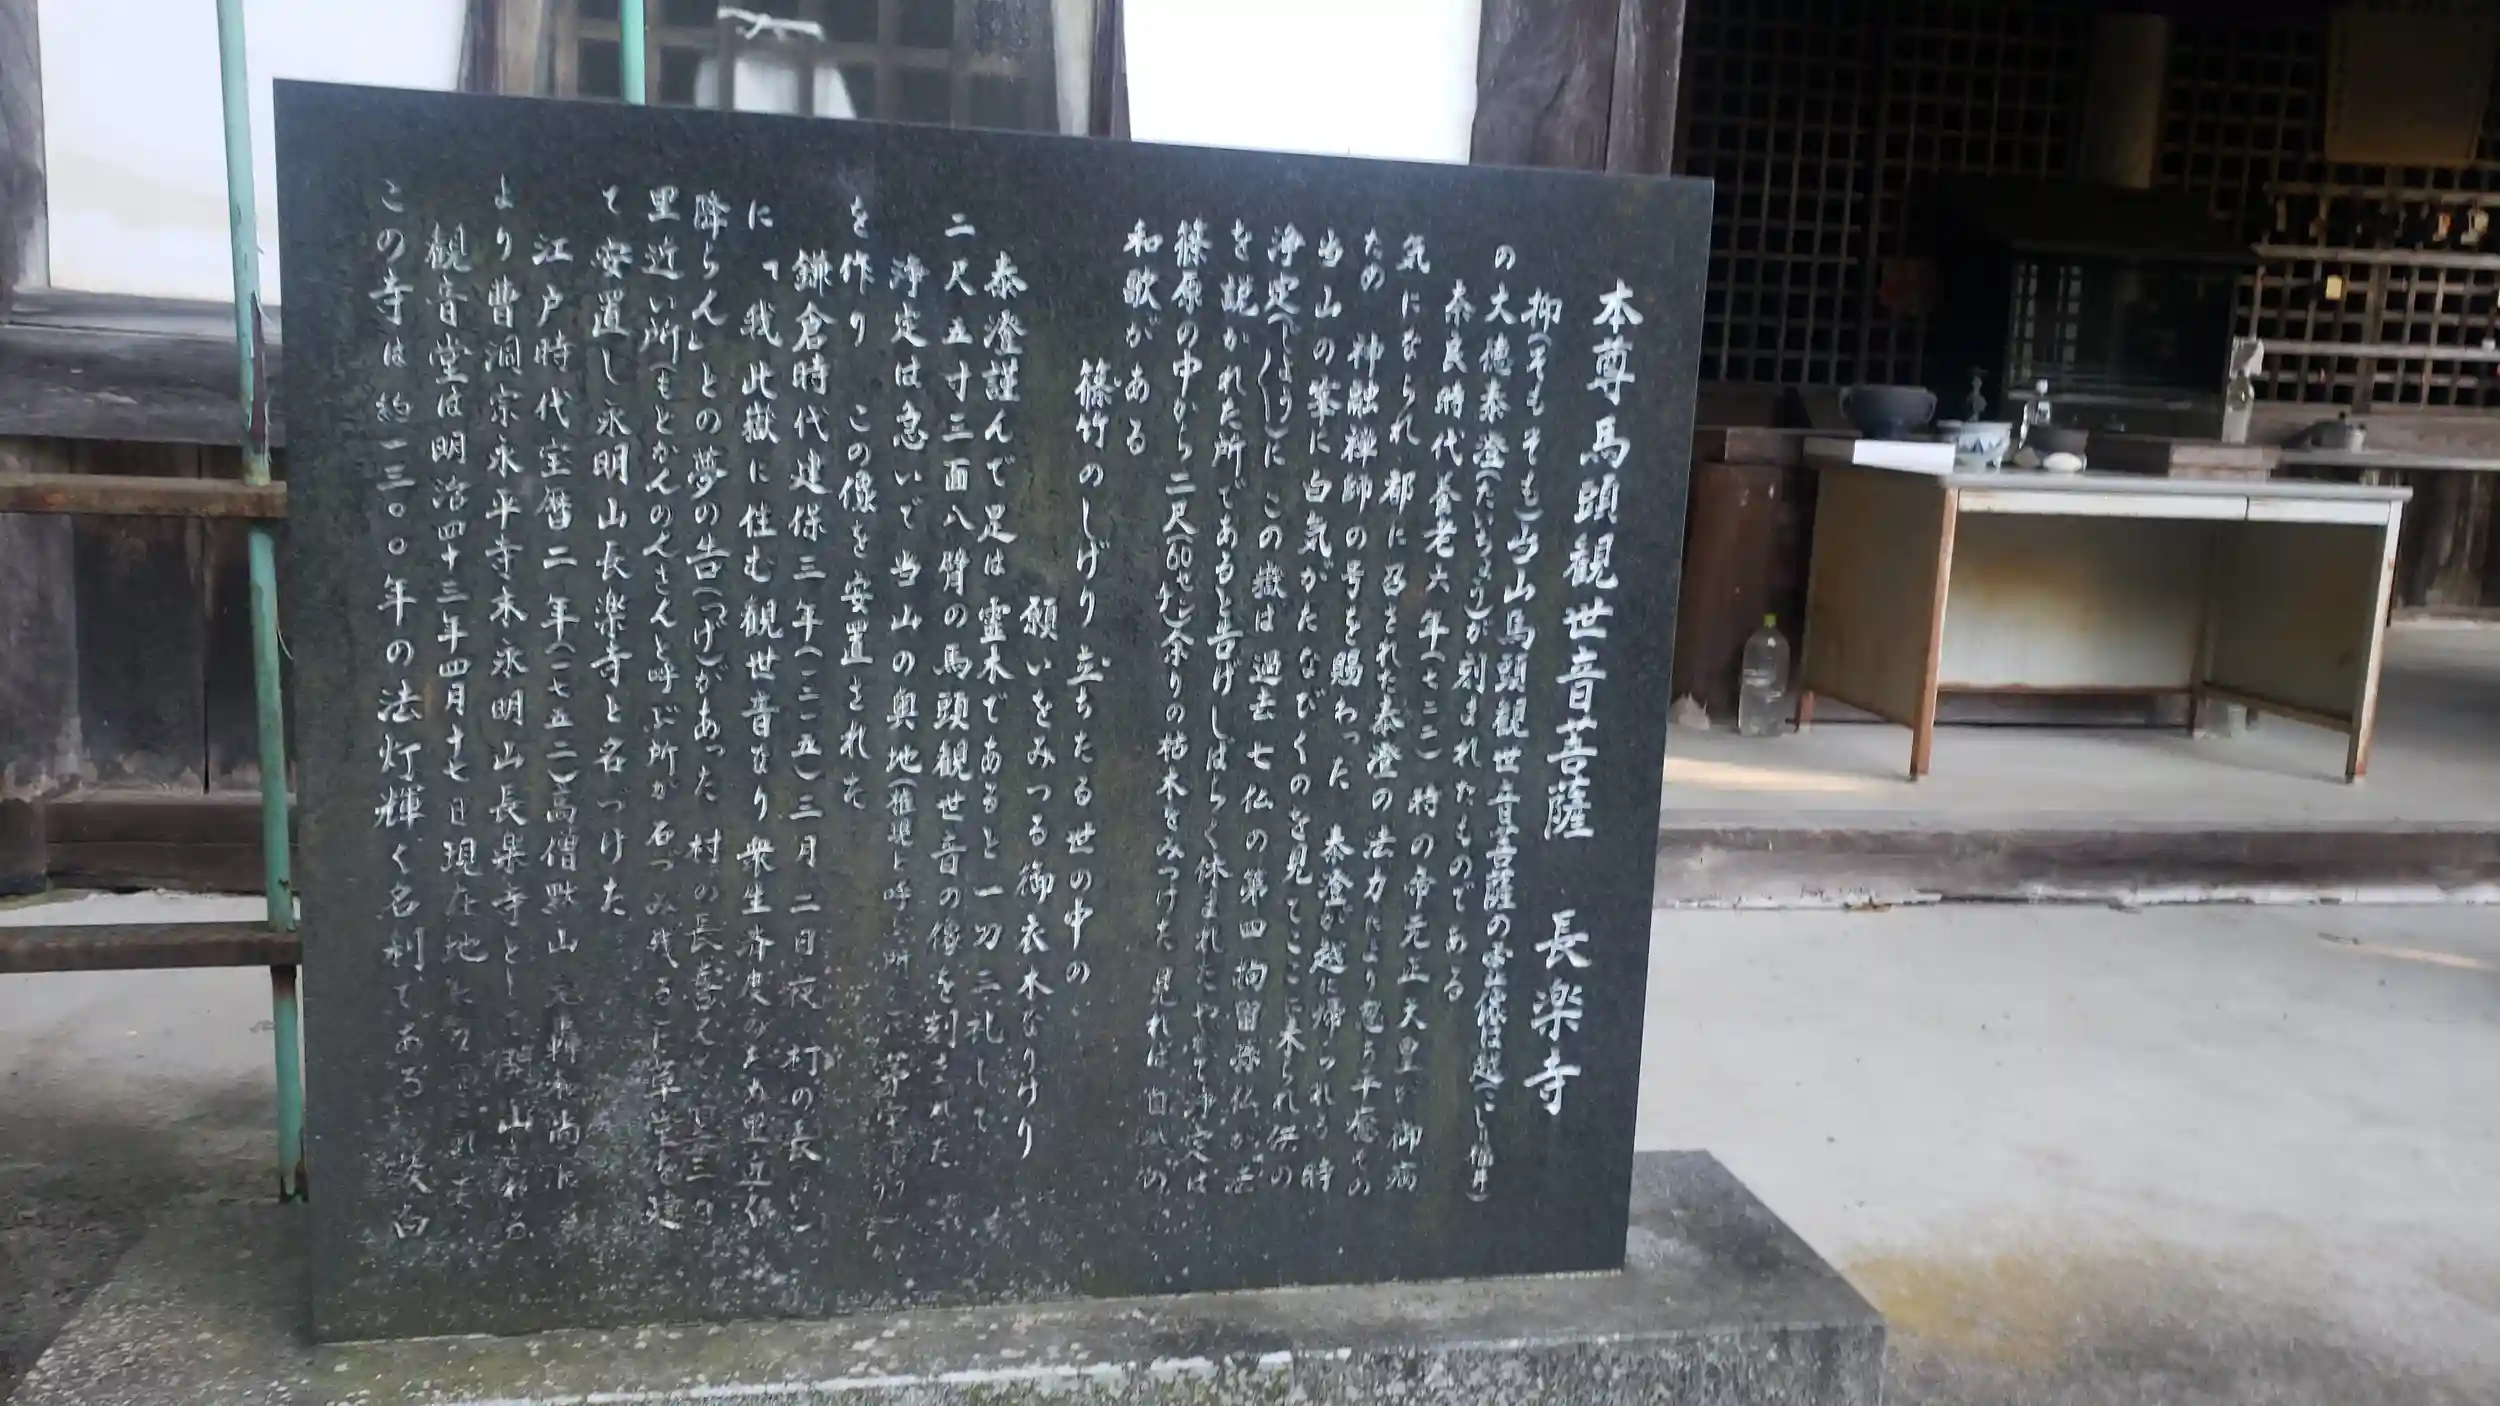 本尊馬頭観世音菩薩　長楽寺
抑(そもそも)当山馬頭観世音菩薩の尊像は越(こし福井)
の大徳泰澄(たいちょう)が刻まれたものである
奈良時代養老六年(七二二)時の帝元正天皇が御病
気になられ都に召された泰澄の法力により忽ち平癒その
ための　神融禅師の号を賜わった　泰澄が越に帰られる時
当山の峯に白気がたなびくのを見てここに来られ供の
浄定(じょうじょう)に この嶽は過去七仏の第四拘留孫仏が法
を説かれた所であると告げしばらく休まれたやがて浄定は
篠原の中から二尺(60センチ)余りの枯木をみつけた 見れば
和歌がある
篠竹のしげり立ちたる世の中の
願いをみつる御衣木なりけり
泰澄謹んで是は霊木であると一刀三礼して
二尺五寸三面八臂の馬頭観世音の像を刻された
浄定は急いで当山の奥地(
を作り　この像を安置された
鎌倉時代建保三年(一二一五)三月二日夜 村の長
にて我此嶽に住む観世音なり衆生済度のため里近
降らん」との夢の告(つげ)があった 村の長
里近い所(もとかんのんさんと呼ぶ所が石づみ残る)に草堂を建
て安置し永明山長楽寺と名づけた
江戸時代宝暦二年(一七五二)高僧黙山元轟和尚に
より曹洞宗永平寺末永明山長楽寺として開山される
観音堂は明治四十三年四月十七日現在地
この寺は約一三〇〇年の法灯輝く名刹である